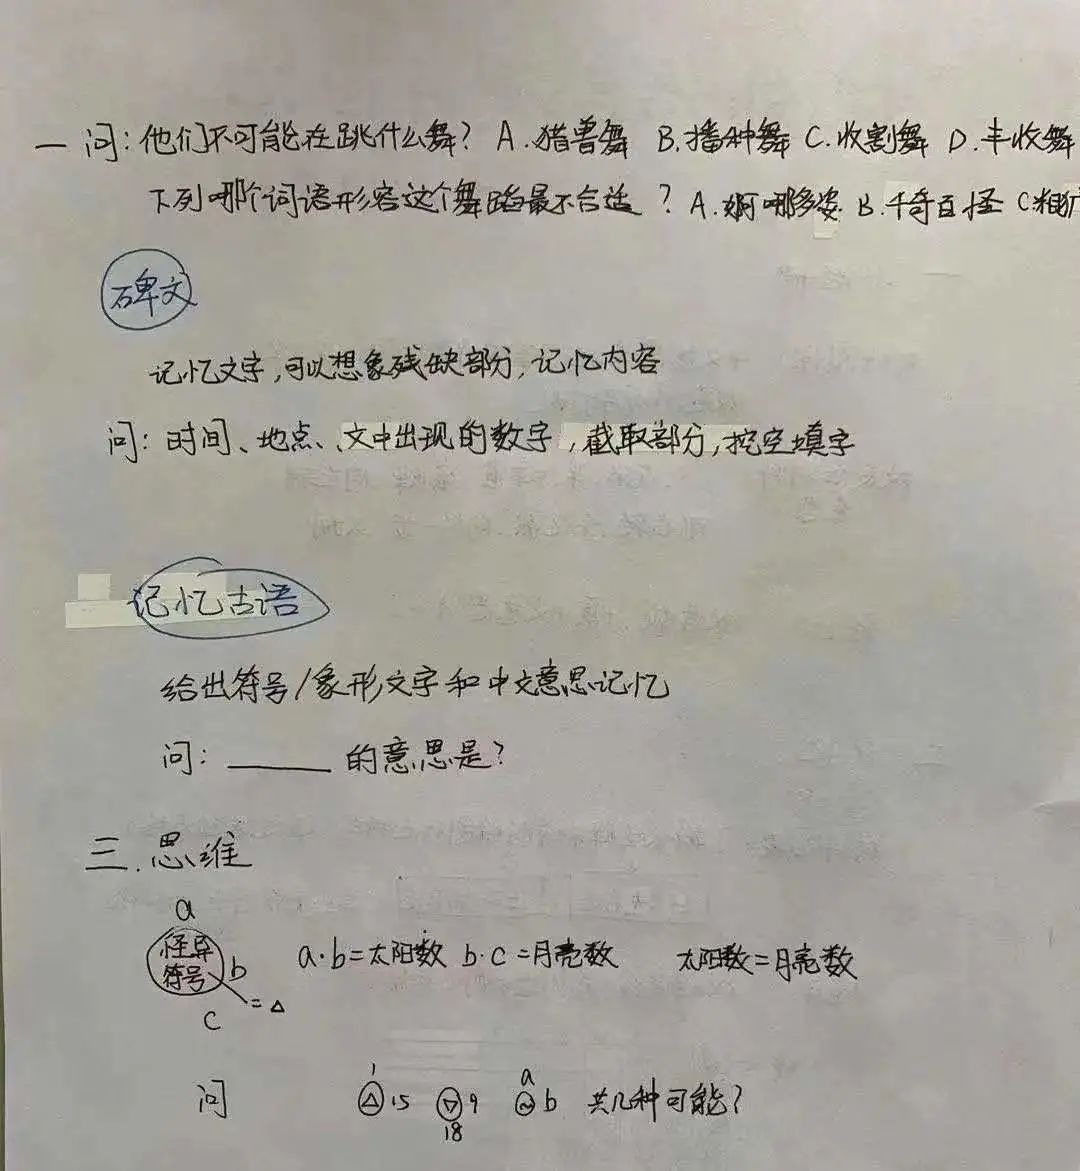 一 问：他们不可能在跳什么舞？ A.猎兽舞 B.播种舞 C.收割舞 D.丰收舞
下列哪个词语形容这个舞蹈最不合适？A.婀哪多姿 B.千奇百怪 C.粗犷
碑文
记忆文字，可以想象残缺部分，记忆内容
问：时间、地点、文中出现的数字，截取部分，挖空填字
记忆古语
给出符号/象形文字和中文意思记忆
问：______的意思是？
三.思维
a
怪异符号 b
c =△
a·b=太阳数 b·c=月亮数 太阳数=月亮数
问 1 △ 15 ▽ 9 18 a ~ b 共几种可能？